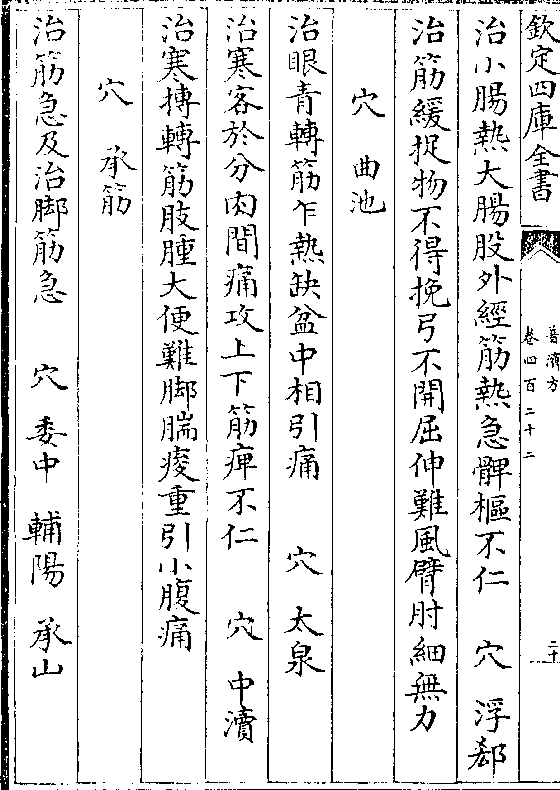 欽定四庫全書
普濟方
卷四百二十二
二十
治小腸熱大腸股外經筋熱急髀樞不仁　穴　浮郄
治筋緩捉物不得挽弓不開屈伸難風臂肘細無力
穴　曲池
治眼青轉筋乍熱缺盆中相引痛　穴　太泉
治寒客於分肉間痛攻上下筋痺不仁　穴　中瀆
治寒搏轉筋肢腫大便難脚腨痠重引小腹痛
穴　承筋
治筋急及治脚筋急　穴　委中　輔陽　承山